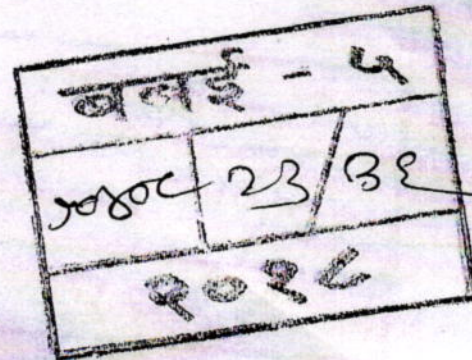 बबई - ५
१०४०८ २३/३६
२०१८